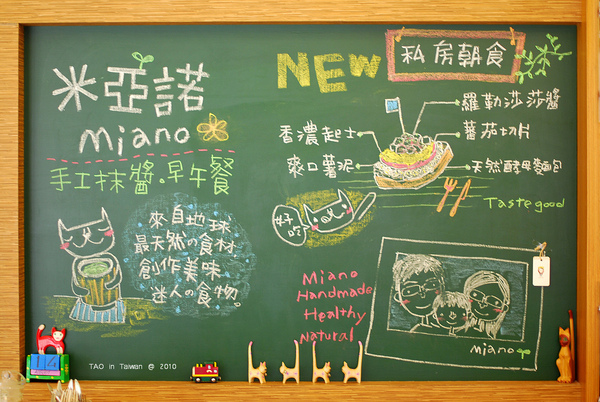 米亞諾
miano
手工抹醬.早午餐
來自地球
最天然の食材
創作美味
迷人の食物。
NEW
私房朝食
羅勒莎莎醬
香濃起士
蕃茄切片
爽口薯泥
天然酵母麵包
Taste good
好吃
Miano
Handmade
Healthy
natural
miano
TAO in Taiwan @ 2010